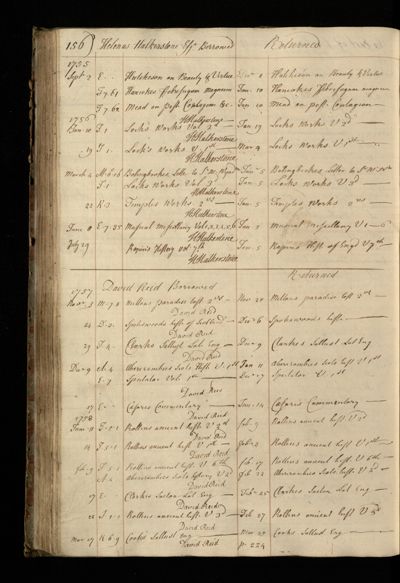 156 Helenus Halkerstone Esqr Borrowed Returned
1755
Sept 2 E Hutcheson on Beauty & Vertue Decr Hutcheson on Beauty & Vertue
F 7 61 Hancokes Febrifugum magnum Jan 10 Hancokes Febrifugum magnum
F 7 62 Mead on Pest. Contagion &c Jan 10 Mead on pest. Contagion
HHalkerstone
1756
Jan 10 F 1 Locks Works Vol 3 Jan 19 Locks Works V 3d
HHalkerstone
19 F 1 Lock's Works V 1st Mar 4 Locks Works V 1st
HHalkerstone
March 4 Bolingbrokes Letter to Sr W Jan 5 Bolingbrokes Letter to Sr W
F 1 Locks Works Vol 2d Jan 5 Locks Works V 2d
HHalkerstone
22 K 3 Temples Works 2nd Jan 5 Temples Works 2nd
HHalkerstone
June 8 E 7 35 Musical Miscellany Vol 1 2 3 4 5 6 Jan 5 Musical Miscellany V 1 6
HHalkerstone
July 29 Rapin's History vol 7th Jan 5 Rapins Hist of Eng V 7th
HHalkerstone
Returned
1757 David Reid Borrowed
Novr 3 M 7 8 Miltons paradise lost 2nd Nov 20 Miltons paradise lost 2nd
David Reid
24 D 2 Spotswoods hist of Scotland Decr 6 Spotswoods hist
David Reid
29 F 4 Clarks Sallust Lat Eng Decr 9 Clarkes Sallust Lat Eng
David Reid
Decr 9 A 4 Abercrombies Scots Histr V 1st Jan 11 Abercrombies Scots hist V 1st
E 7 Spectator Vol 1st Decr 17 Spectator V 1st
David Reid
17 E Cæsars Commentary Jan 14 Cæsaris Commentary
David Reid
1758
Jan 11 F 5 1 Rollins ancient hist V 2d Feb 9 Rollins ancient hist V 2d
David Reid
14 F 5 1 Rollins ancient hist V 1st Feb 2 Rollins ancient hist V 1st
David Reid
Feb 9 F 5 1 Rollins ancient hist V 6th Feb 17 Rollins ancient hist V 6th
A 4 Abercrombies Scots history V 2d Feb 22 Abercrombies Scots hist V 2d
David Reid
17 E Clarkes Sueton Lat Eng Feb 25 Clarkes Sueton Lat Eng
David Reid
22 F 5 1 Rollins ancient hist V 3d Feb 27 Rollins ancient hist V 3d
David Reid
Mar 27 K 6 9 Cooks Sallust Eng Mar 29 Cooks Sallust Eng
David Reid p 224